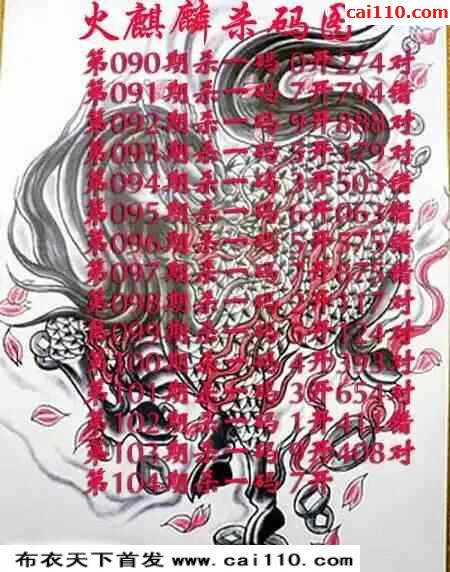 cai110.com
火麒麟杀码图
第090期杀一码 0开274对
第091期杀一码 7开794错
第092期杀一码 9开888对
第093期杀一码 5开379对
第094期杀一码 3开503错
第095期杀一码 6开063错
第096期杀一码 5开575错
第097期杀一码 开875错
第098期杀一码 2开117对
第099期杀一码 开124对
第100期杀一码 4开393对
第101期杀一码 3开654对
第102期杀一码 1开412错
第103期杀一码 9开408对
第104期杀一码 7开
布衣天下首发 www.cai110.com